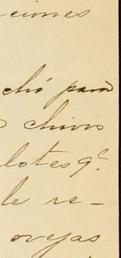 ciones
chó para
o chivos
lotes qe.
le re-
ovejas